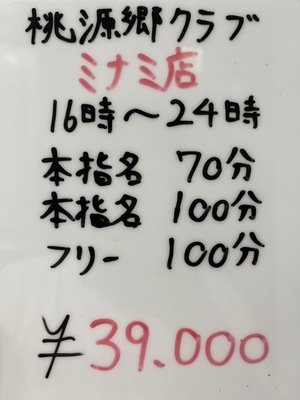 桃源郷クラブ
ミナミ店
16時～24時
本指名 70分
本指名 100分
フリー 100分
¥39.000